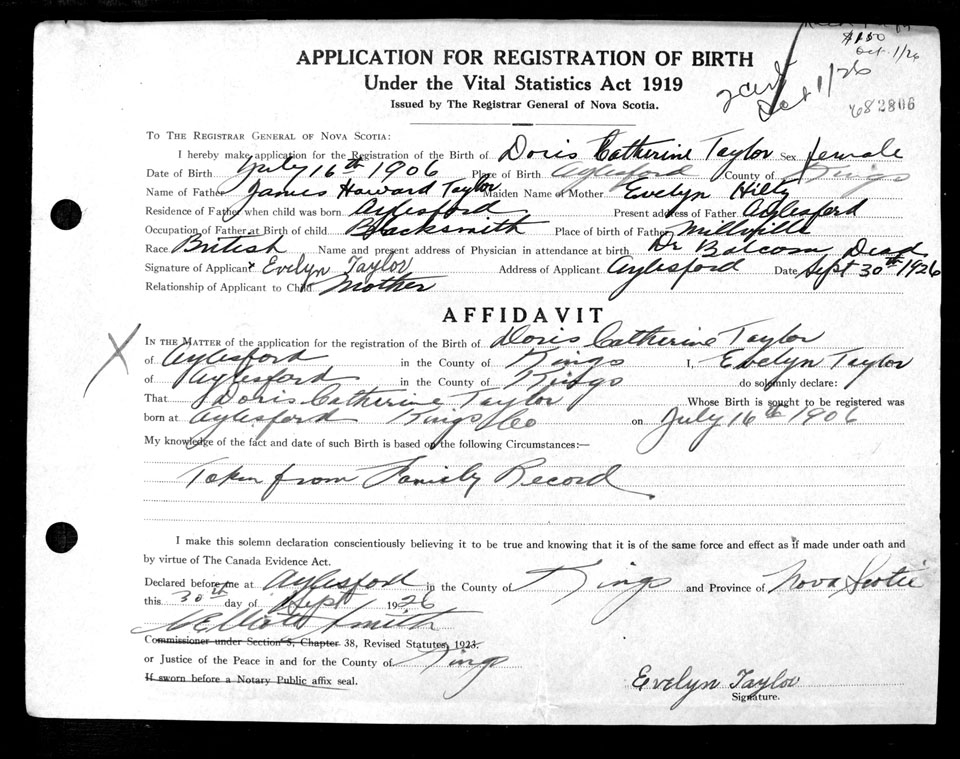 $1.50
Oct. 1/26
Oct 1/26
682806
APPLICATION FOR REGISTRATION OF BIRTH
Under the Vital Statistics Act 1919
Issued by The Registrar General of Nova Scotia.
TO THE REGISTRAR GENERAL OF NOVA SCOTIA:
I hereby make application for the Registration of the Birth of Doris Catherine Taylor Sex female
Date of Birth July 16th 1906 Place of Birth Aylesford County of Kings
Name of Father James Howard Taylor Maiden Name of Mother Evelyn Hilty
Residence of Father when child was born Aylesford Present address of Father Aylesford
Occupation of Father at Birth of child Blacksmith Place of birth of Father Millville
Race British Name and present address of Physician in attendance at birth Dr Balcom Dead
Signature of Applicant x Evelyn Taylor Address of Applicant Aylesford Date Sept 30th 1926
Relationship of Applicant to Child Mother
AFFIDAVIT
IN THE MATTER of the application for the registration of the Birth of Doris Catherine Taylor
X of Aylesford in the County of Kings I, Evelyn Taylor
of Aylesford in the County of Kings do solemnly declare:
That Doris Catherine Taylor Whose Birth is sought to be registered was
born at Aylesford Kings Co on July 16th 1906
My knowledge of the fact and date of such Birth is based on the following Circumstances:—
Taken from Family Record
I make this solemn declaration conscientiously believing it to be true and knowing that it is of the same force and effect as if made under oath and
by virtue of The Canada Evidence Act.
Declared before me at Aylesford in the County of Kings and Province of Nova Scotia
this 30th day of Sept 1926
Smith
Commissioner under Section 5, Chapter 38, Revised Statutes, 1923.
or Justice of the Peace in and for the County of Kings
If sworn before a Notary Public affix seal.
Evelyn Taylor
Signature.